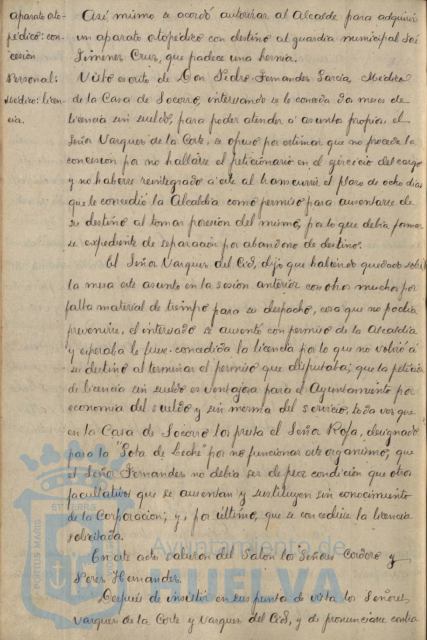 aparato orto-
pédico: con-
cesión
Personal:
Médico: licen-
cia.
Así mismo se acordó autorizar al Alcalde para adquirir
un aparato ortopédico con destino al guardia municipal José
Jimenez Cruz, que padece una hernia.
Visto escrito de Don Pedro Fernandez García, Médico
de la Casa de Socorro, interesando se le conceda dos meses de
licencia sin sueldo, para poder atender a asuntos propios, el
Señor Vazquez de la Corte, se opuso por estimar que no procede la
concesion por no hallarse el peticionario en el ejercicio del cargo
y no haberse reintegrado a este al transcurrir el plazo de ocho dias
que le concedió la Alcaldía como permiso para ausentarse de
su destino al tomar posesion del mismo, por lo que debia formar-
se expediente de separacion por abandono de destino.
El Señor Vazquez del Cid, dijo que habiendo quedado sobre
la mesa este asunto en la sesion anterior con otros muchos por
falta material de tiempo para su despacho, cosa que no podia
prevenirse, el interesado se ausentó con permiso de la Alcaldia
y esperaba le fuese concedida la licencia por lo que no volvió a
su destino al terminar el permiso que disfrutaba; que la peticion
de licencia sin sueldo es ventajosa para el Ayuntamiento por
economia del sueldo y sin merma del servicio, toda vez que
en la Casa de Socorro los presta el Señor Rofa, designado
para la "Gota de Leche" por no funcionar este organismo, que
el Señor Fernandez no debia ser de peor condición que otros
facultativos que se ausentan y sustituyen sin conocimiento
de la Corporacion; y, por último, que se concediese la licencia
solicitada.
En este acto salieron del Salon los Señores Cordero y
Perez Hernandez.
Después de insistir en sus puntos de vista los Señores
Vazquez de la Corte y Vazquez del Cid, y de pronunciarse contra
Ayuntamiento de
HUELVA
PORTUS MARIS ET TERRÆ